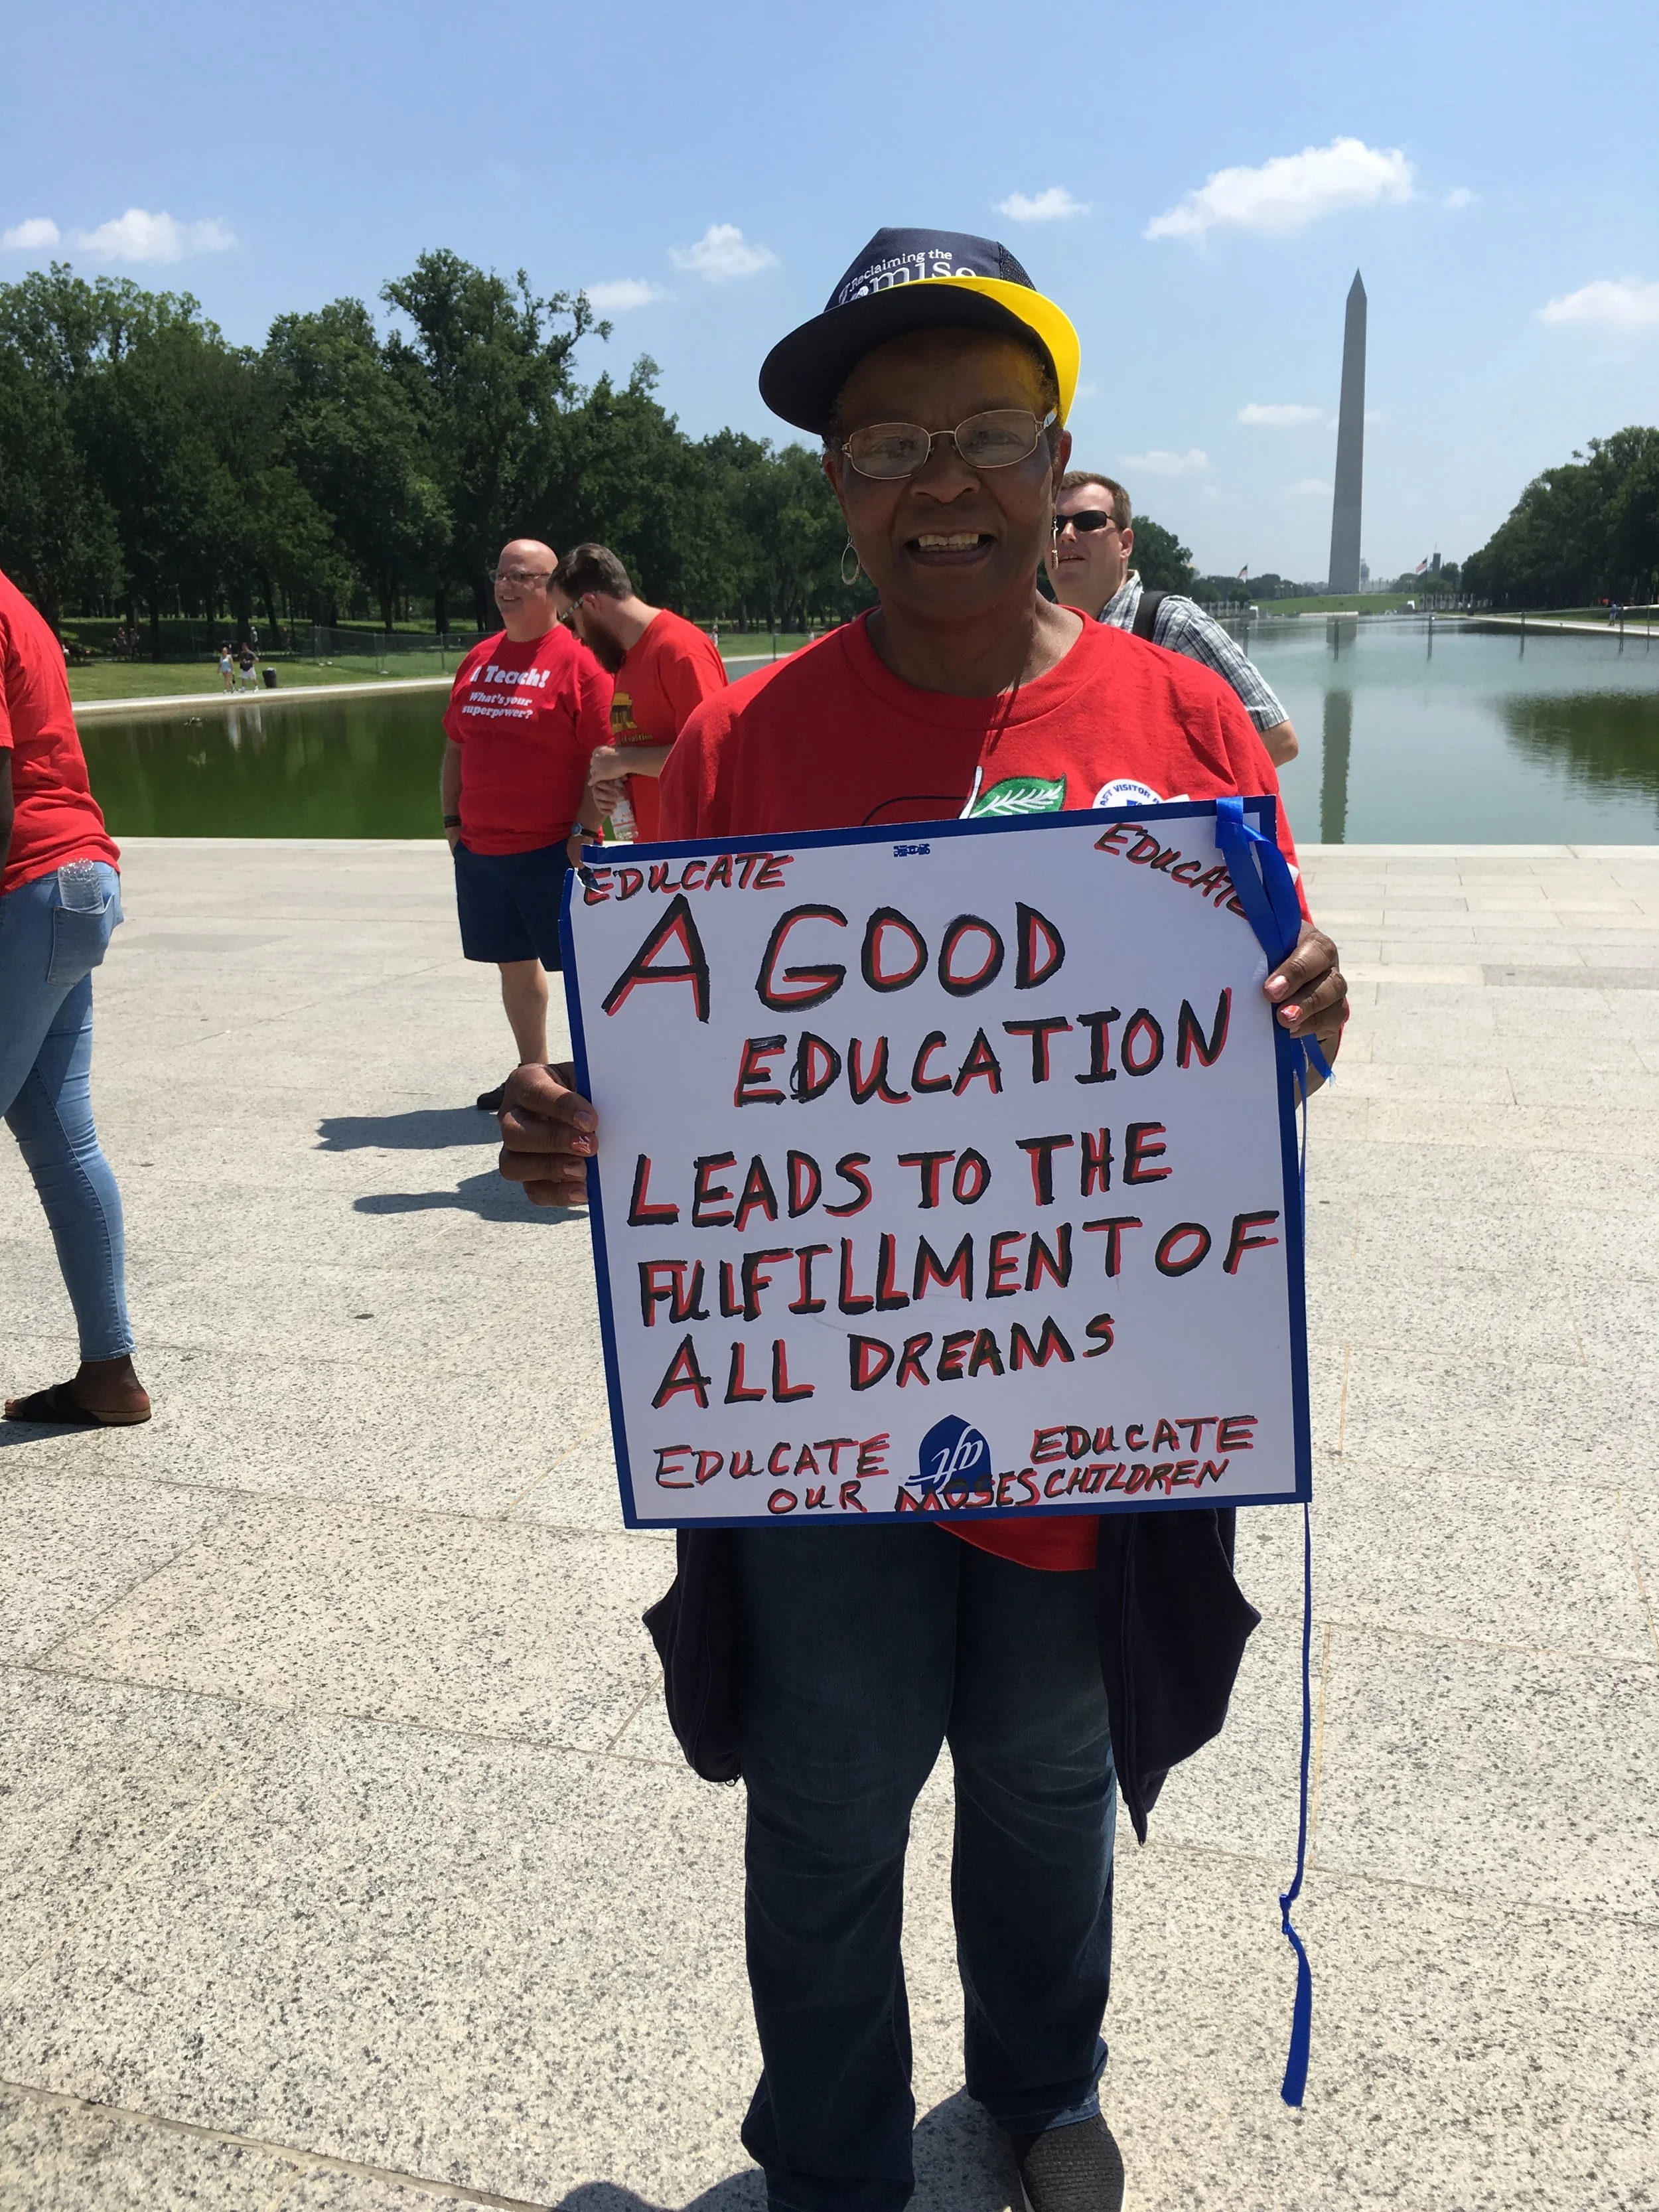 Reclaiming the
I Teach!
What's your
superpower?
AFT VISITOR
EDUCATE
EDUCATE
A GOOD
EDUCATION
LEADS TO THE
FULFILLMENT OF
ALL DREAMS
EDUCATE aft EDUCATE
OUR MOSES CHILDREN